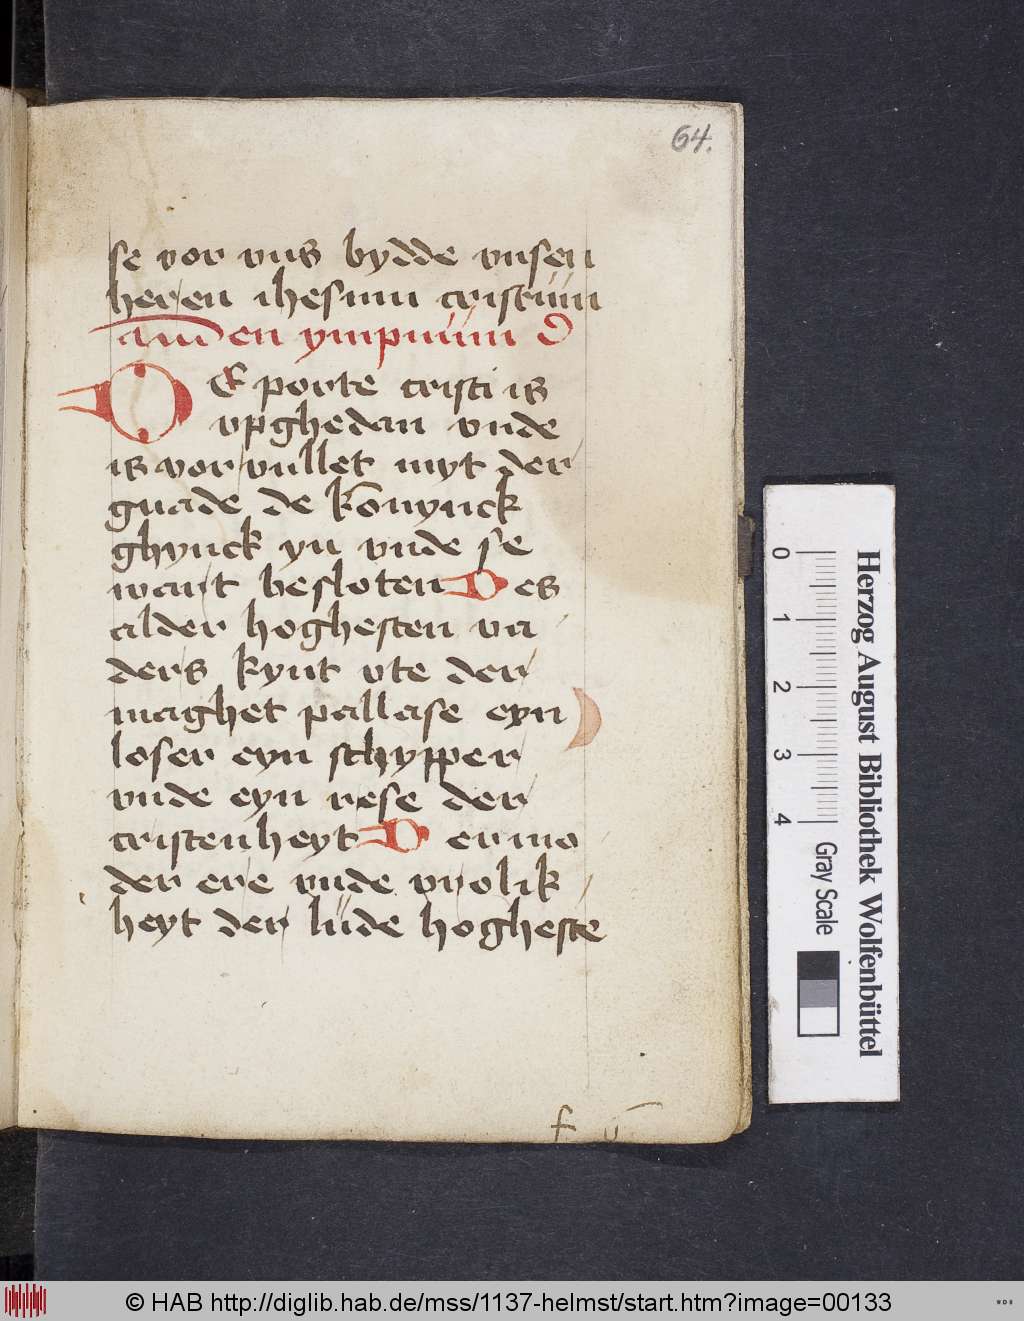 64.
se vor vns bydde vnsen
heren ihesum cristum
amen ympnum
De porte cristi is
vpghedan vnde
is vor vullet myt der
gnade de konynck
ghynck yn vnde se
wart besloten Des
alder hoghesten va
ders kynt vte der
maghet pallase eyn
loser eyn schypper
vnde eyn rese der
cristenheyt Der mo
der ere vnde vrolik
heyt der lüde hogheste
Herzog August Bibliothek Wolfenbüttel
0 1 2 3 4
Gray Scale
© HAB http://diglib.hab.de/mss/1137-helmst/start.htm?image=00133